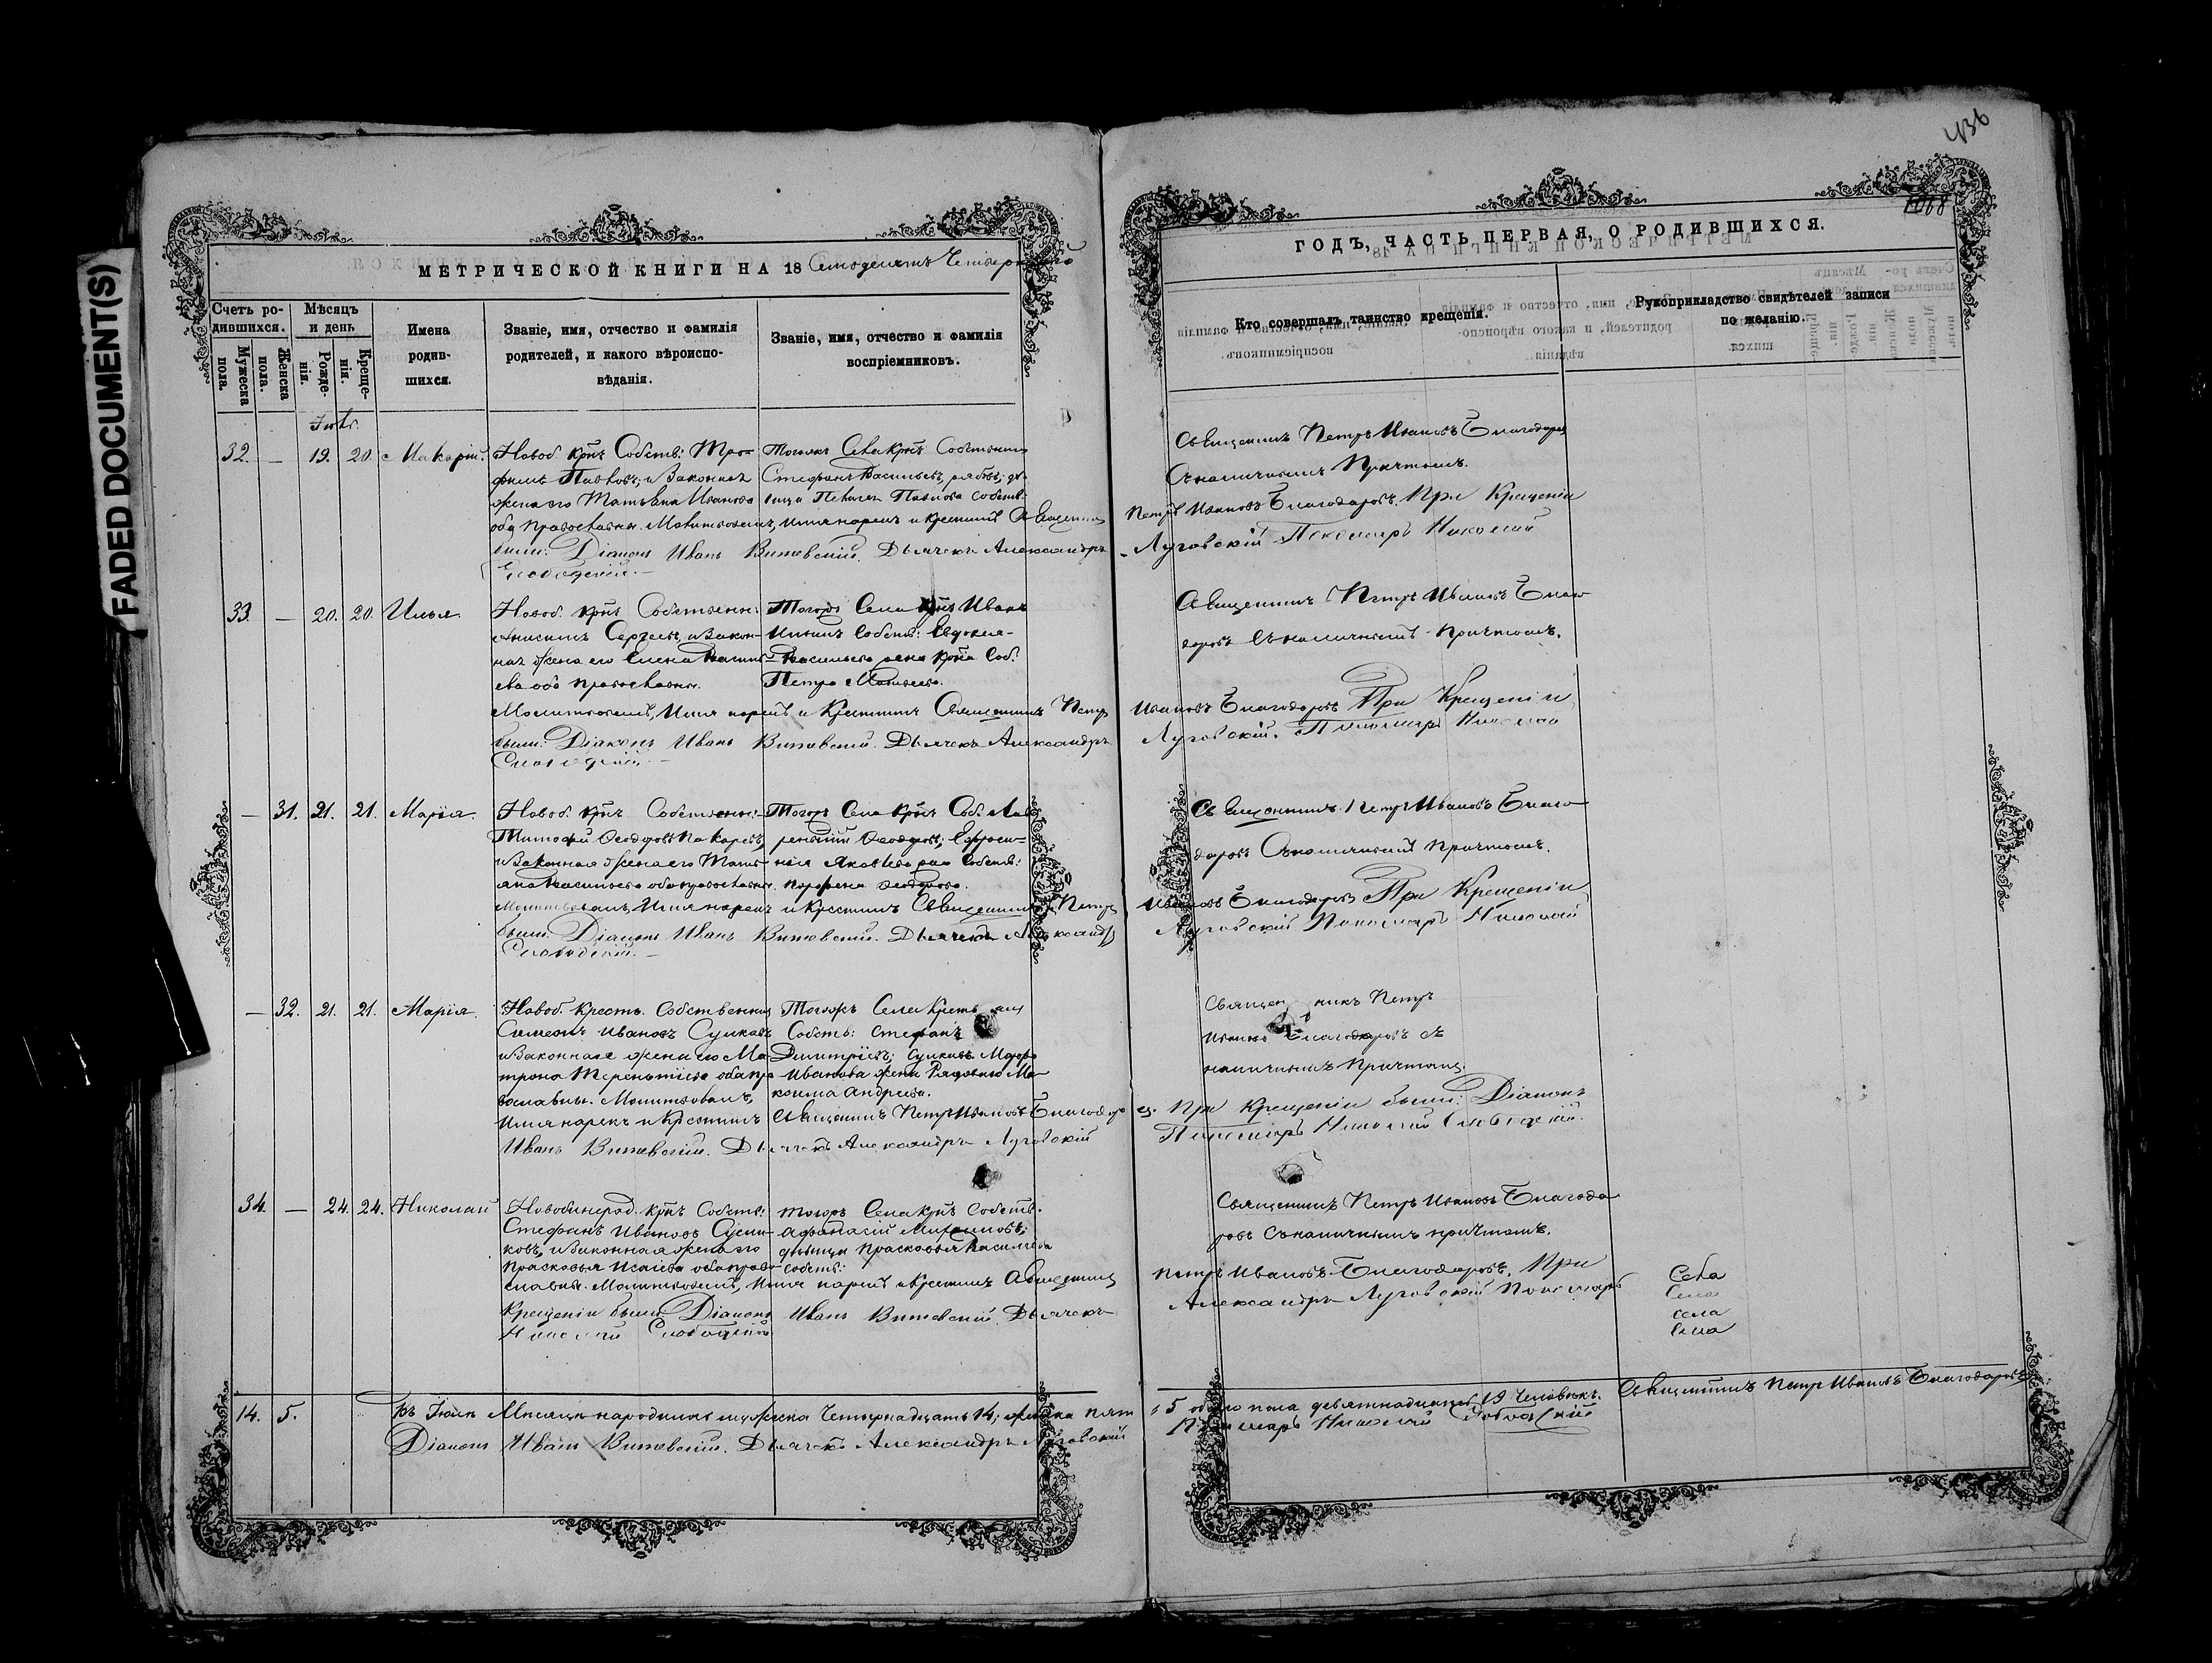 FADED DOCUMENT(S)
436
1068
МЕТРИЧЕСКОЙ КНИГИ НА 18 Семьдесятъ Четвертый
ГОДЪ, ЧАСТЬ ПЕРВАЯ, О РОДИВШИХСЯ.
Счетъ родившихся.
Мужеска пола.
Женска пола.
Мѣсяцъ и день
Рожденія.
Крещенія.
Имена родившихся.
Званіе, имя, отчество и фамилія родителей, и какого вѣроисповѣданія.
Званіе, имя, отчество и фамилія воспріемниковъ.
Кто совершалъ таинство крещенія.
Рукоприкладство свидѣтелей записи по желанію.
32. — 19. 20. Макарій.
Новоб. крН Собств: Тро-
фимъ Павловъ, и Законная
жена его Татьяна Иванова
оба православн. Молитвовалъ, имя нарекъ и крестилъ Священникъ
были: Діаконъ Иванъ Витевскій. Дьячекъ Александръ
Слободскій.
Тогожъ Села крН Собственникъ
Стефанъ Васильевъ,
Священникъ Петръ Ивановъ Благодаровъ
Съ наличнымъ Причтомъ.
Петръ Ивановъ Благодаровъ. При Крещеніи
Луговскій Пономарь Николай
33. — 20. 20. Илья
Новоб. крН Собственн:
Анисимъ Сергѣевъ, и Закон-
ная жена его Елена Василь-
ева оба православны.
Молитвовалъ, Имя нарекъ и Крестилъ Священникъ Петръ
были: Діаконъ Иванъ Витевскій. Дьячекъ Александръ
Слободскій.
Тогожъ Села крН Иванъ
Ильинъ Собств: Евдокія
Васильева жена крН Соб.
Петра Матвѣева.
Священникъ Петръ Ивановъ Благо-
даровъ Съ наличнымъ Причтомъ.
Ивановъ Благодаровъ При Крещеніи
Луговскій. Пономарь Николай
— 31. 21. 21. Марія.
Новоб. крН Собственн:
Тимофей Ѳеодоровъ Пакаревъ,
и Законная жена его Тать-
яна Васильева оба православн.
Молитвовалъ, Имя нарекъ и Крестилъ Священникъ Петръ
были: Діаконъ Иванъ Витевскій. Дьячекъ Александръ
Слободскій.
Тогожъ Села крН Соб. Лав-
рентій Ѳеодоровъ; Ефроси-
нія Яковлева Собств:
Священникъ Петръ Ивановъ Благо-
даровъ Съ наличнымъ Причтомъ.
Ивановъ Благодаровъ При Крещеніи
Луговскій Пономарь Николай
— 32. 21. 21. Марія.
Новоб. Кресть. Собственникъ
Симеонъ Ивановъ Сулковъ
и Законная жена его Ма-
трона Терентіева оба пра-
вославны. Молитвовалъ,
Имя нарекъ и Крестилъ Священникъ Петръ Ивановъ Благодаровъ.
Иванъ Витевскій. Дьячекъ Александръ Луговскій
Тогожъ Села
Собств: Стефанъ
Димитріевъ; Сулковъ
Иванова жена Рядоваго Ма-
ксима Андреева.
Священникъ Петръ
Ивановъ Благодаровъ съ
наличнымъ Причтомъ.
При Крещеніи были: Діаконъ
Пономарь Николай Слободскій.
34. — 24. 24. Николай
Новобинерад. крН Собств:
Стефанъ Ивановъ Сули-
ковъ, и Законная жена его
Прасковья Исаева оба право-
славны. Молитвовалъ, Имя нарекъ и Крестилъ Священникъ
Крещеніи были Діаконъ Иванъ Витевскій. Дьячекъ
Николай Слободскій
Тогожъ Села крН Собств.
Афанасій Михайловъ;
дѣвица Прасковья Васильева
Собств:
Священникъ Петръ Ивановъ Благода-
ровъ Съ наличнымъ причтомъ.
Петръ Ивановъ Благодаровъ. При
Александръ Луговскій Пономарь
Села
Села
села
Села
14. 5.
Въ Іюлѣ Мѣсяцѣ народилось мужеска Четырнадцать 14; женска пять 5 обоего пола девятнадцать 19 Человѣкъ. Священникъ Петръ Ивановъ Благодаровъ
Діаконъ Иванъ Витевскій. Дьячекъ Александръ Луговскій Пономарь Николай Слободскій